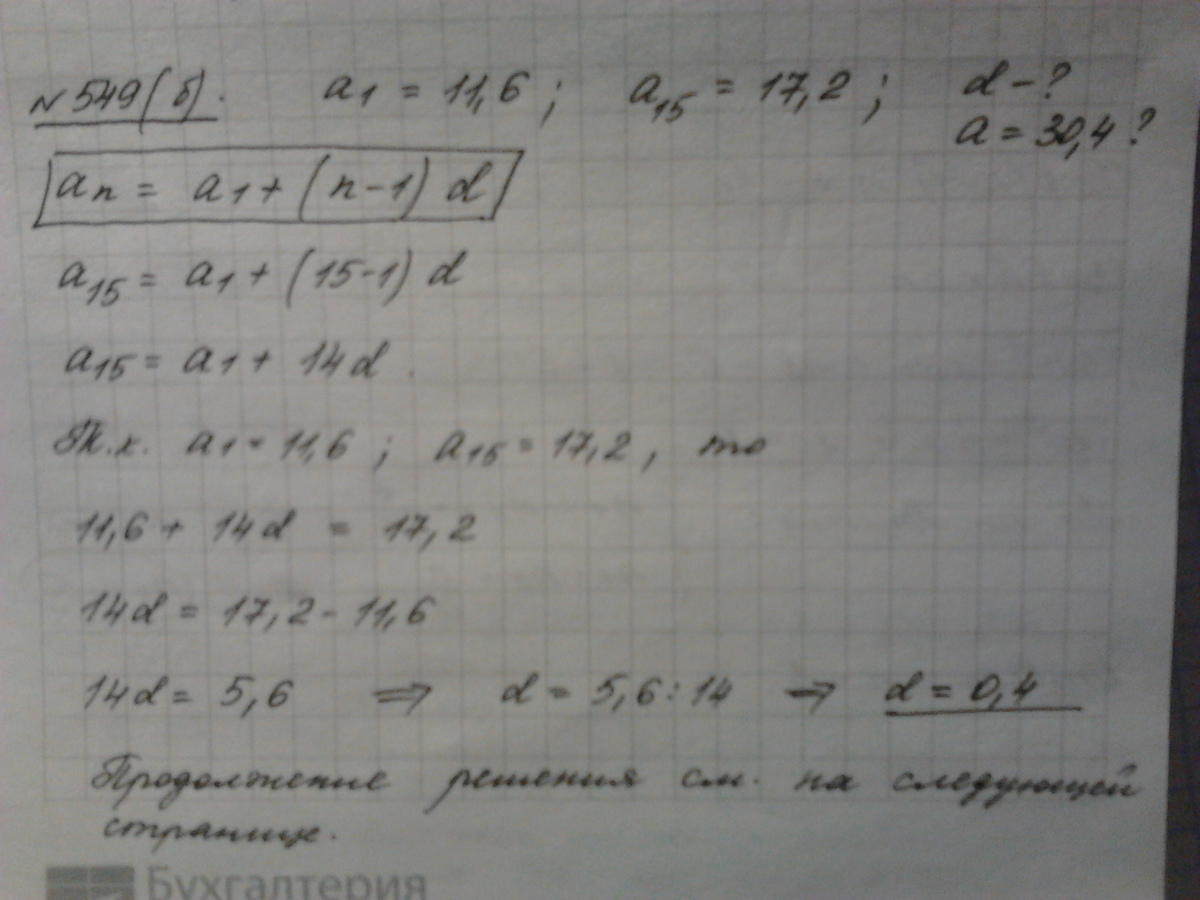 №549(б). a₁ = 11,6 ; a₁₅ = 17,2 ; d - ?
a = 30,4 ?
aₙ = a₁ + (n-1) d
a₁₅ = a₁ + (15-1) d
a₁₅ = a₁ + 14d .
Т.к. a₁ = 11,6 ; a₁₅ = 17,2 , то
11,6 + 14d = 17,2
14d = 17,2 - 11,6
14d = 5,6 ⇒ d = 5,6 : 14 ⇒ d = 0,4
Продолжение решения см. на следующей
странице.
Бухгалтерия